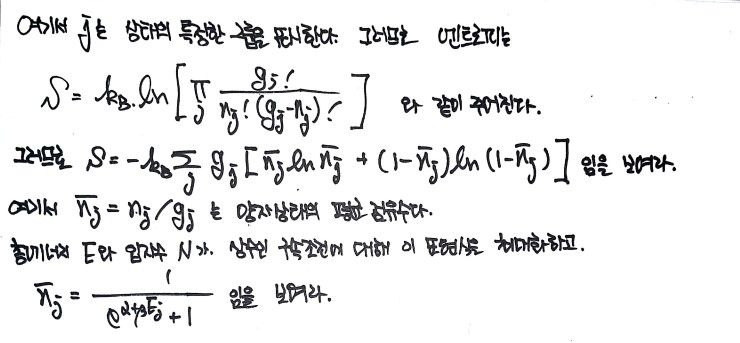 여기서 j는 상태의 특정한 그룹을 표시한다. 그러므로 엔트로피는
S = k_B. ln [ π_j g_j! / n_j! (g_j - n_j)! ] 와 같이 주어진다.
그러므로 S = -k_B Σ_j g_j [ n̄_j ln n̄_j + (1 - n̄_j) ln (1 - n̄_j) ] 임을 보여라.
여기서 n̄_j = n_j / g_j 는 양자상태의 평균 점유수다.
총에너지 E와 입자수 N가. 상수인 구속조건에 대해 이 표현식을 최대화하고.
n̄_j = 1 / e^{α+βE_j} + 1 임을 보여라.